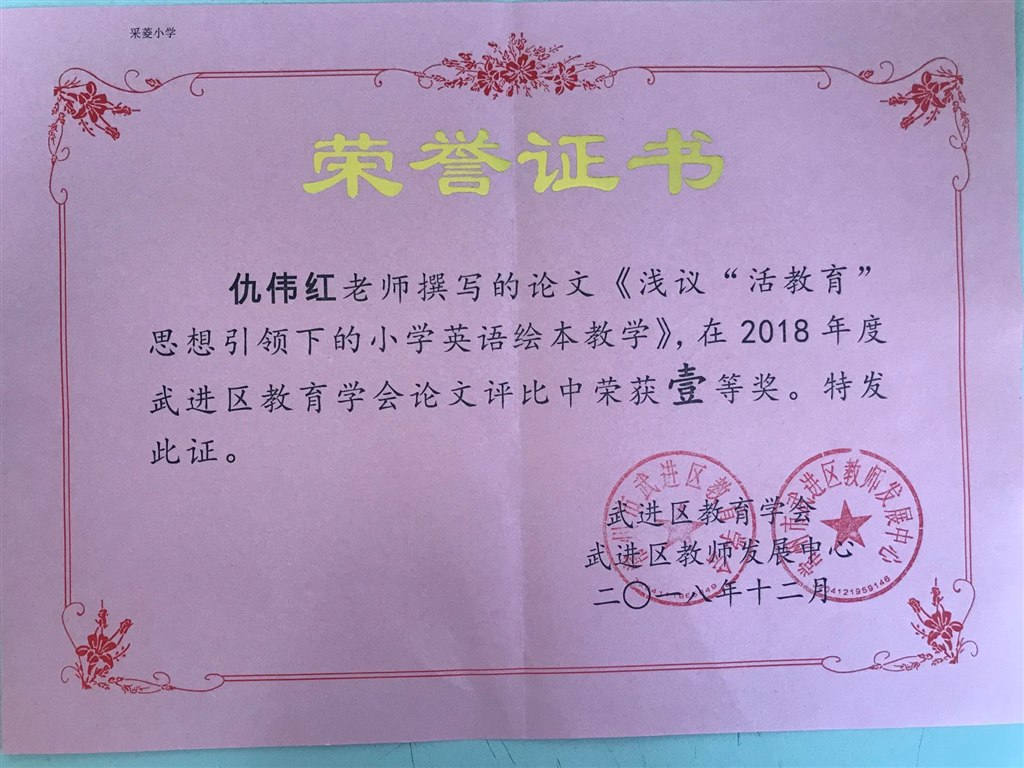 采菱小学
荣誉证书
仇伟红老师撰写的论文《浅议“活教育”
思想引领下的小学英语绘本教学》，在 2018 年度
武进区教育学会论文评比中荣获壹等奖。特发
此证。
武进区教育学会
武进区教师发展中心
二〇一八年十二月
常州市武进区教育学会
常州市武进区教师发展中心